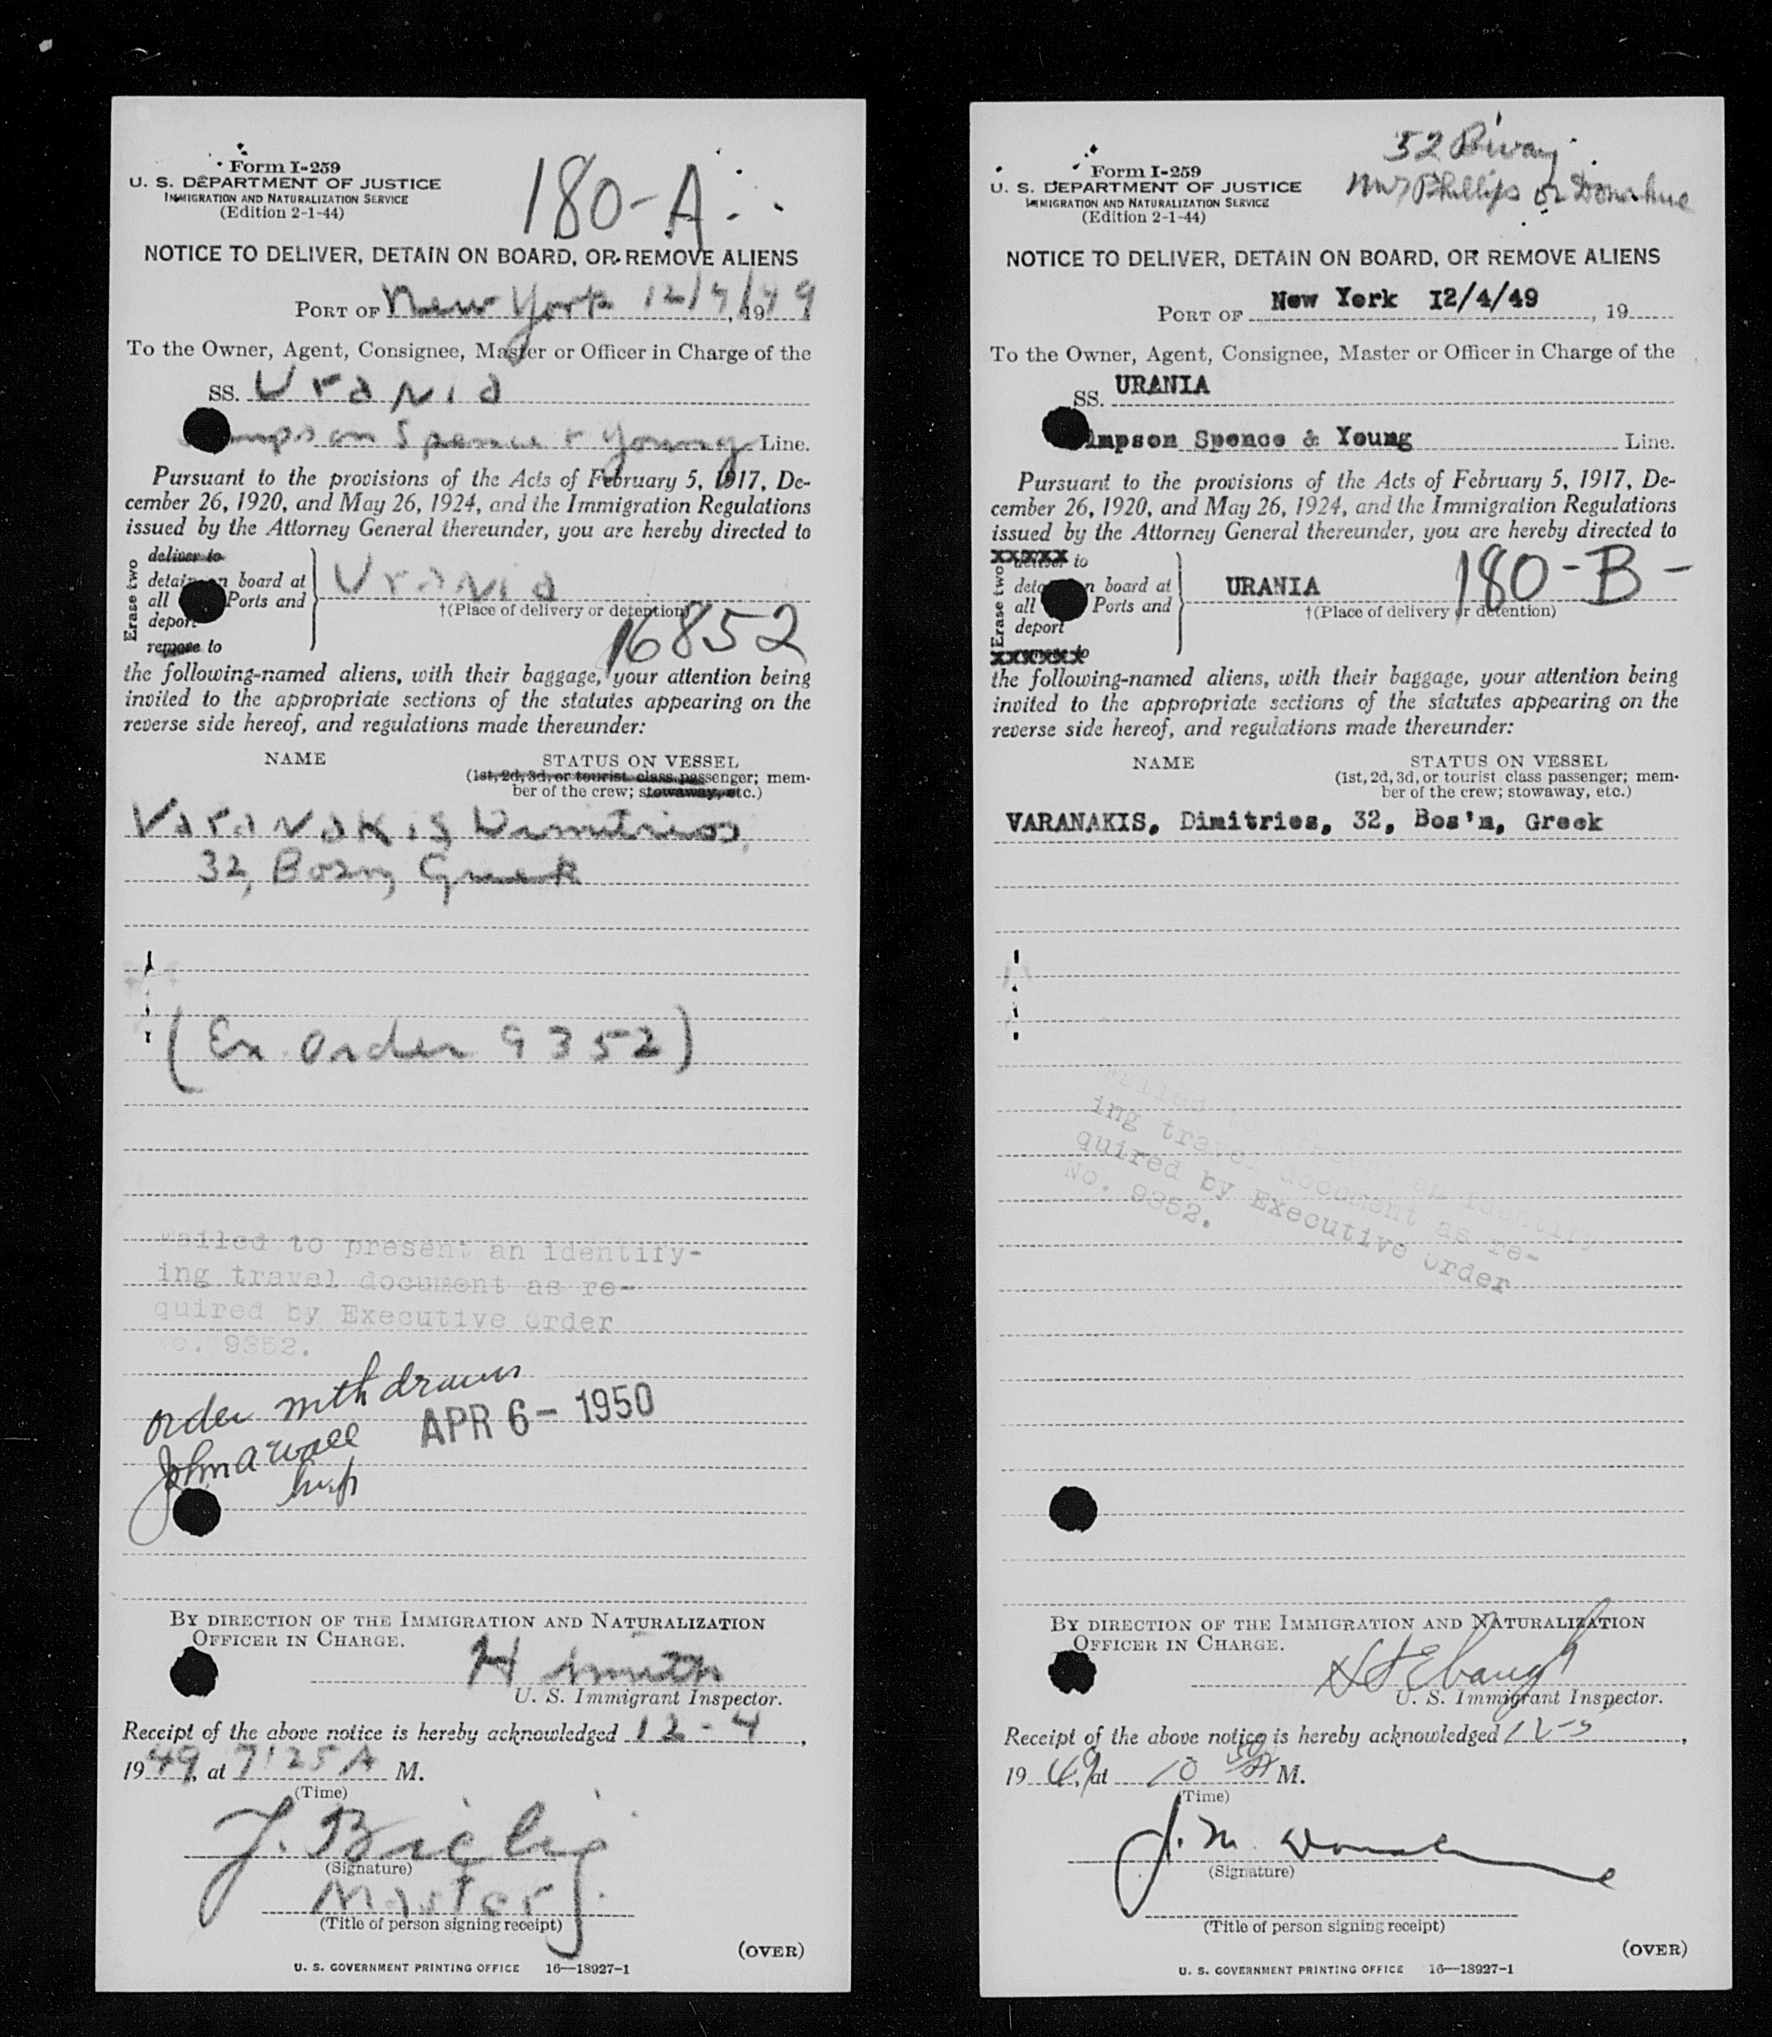 Form I-259
U. S. DEPARTMENT OF JUSTICE
IMMIGRATION AND NATURALIZATION SERVICE
(Edition 2-1-44)
180-A
NOTICE TO DELIVER, DETAIN ON BOARD, OR REMOVE ALIENS
PORT OF New York 12/4/49, 19
To the Owner, Agent, Consignee, Master or Officer in Charge of the
SS. Urania
mpson Spence & Young Line.
Pursuant to the provisions of the Acts of February 5, 1917, De-
cember 26, 1920, and May 26, 1924, and the Immigration Regulations
issued by the Attorney General thereunder, you are hereby directed to
Erase two
deliver to
detain on board at
all Ports and
deport
remove to
Urania
†(Place of delivery or detention)
16852
the following-named aliens, with their baggage, your attention being
invited to the appropriate sections of the statutes appearing on the
reverse side hereof, and regulations made thereunder:
NAME STATUS ON VESSEL
(1st, 2d, 3d, or tourist class passenger; mem-
ber of the crew; stowaway, etc.)
Varanakis Dimitrios,
32, Bosn, Greek
(Ex. Order 9352)
Failed to present an identify-
ing travel document as re-
quired by Executive Order
No. 9352.
order withdrawn
APR 6 - 1950
John A Wall
Insp
BY DIRECTION OF THE IMMIGRATION AND NATURALIZATION
OFFICER IN CHARGE.
H Smith
U. S. Immigrant Inspector.
Receipt of the above notice is hereby acknowledged 12-4,
1949, at 7:25 A M.
(Time)
(Signature)
Master
(Title of person signing receipt)
(OVER)
U. S. GOVERNMENT PRINTING OFFICE 16—18927-1
52 Bway
Mr Phillips or Donahue
Form I-259
U. S. DEPARTMENT OF JUSTICE
IMMIGRATION AND NATURALIZATION SERVICE
(Edition 2-1-44)
NOTICE TO DELIVER, DETAIN ON BOARD, OR REMOVE ALIENS
PORT OF New York 12/4/49, 19
To the Owner, Agent, Consignee, Master or Officer in Charge of the
SS. URANIA
impson Spence & Young Line.
Pursuant to the provisions of the Acts of February 5, 1917, De-
cember 26, 1920, and May 26, 1924, and the Immigration Regulations
issued by the Attorney General thereunder, you are hereby directed to
Erase two
deliver to
detain on board at
all Ports and
deport
to
URANIA
180-B-
†(Place of delivery or detention)
the following-named aliens, with their baggage, your attention being
invited to the appropriate sections of the statutes appearing on the
reverse side hereof, and regulations made thereunder:
NAME STATUS ON VESSEL
(1st, 2d, 3d, or tourist class passenger; mem-
ber of the crew; stowaway, etc.)
VARANAKIS, Dimitries, 32, Bos'n, Greek
Failed to present an identify-
ing travel document as re-
quired by Executive Order
No. 9352.
BY DIRECTION OF THE IMMIGRATION AND NATURALIZATION
OFFICER IN CHARGE.
U. S. Immigrant Inspector.
Receipt of the above notice is hereby acknowledged 12-5,
1949, at 10 M.
(Time)
J. M. Donahue
(Signature)
(Title of person signing receipt)
(OVER)
U. S. GOVERNMENT PRINTING OFFICE 16—18927-1